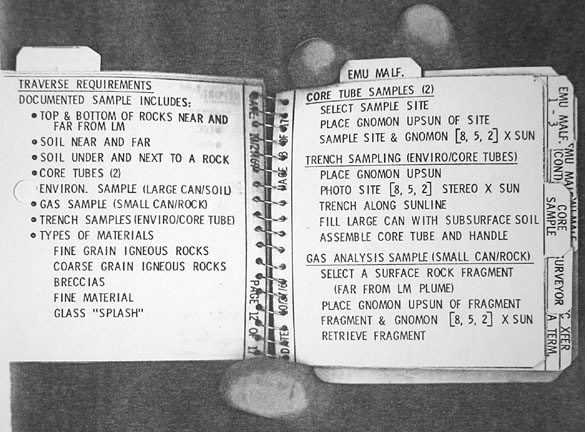 TRAVERSE REQUIREMENTS
DOCUMENTED SAMPLE INCLUDES:
• TOP & BOTTOM OF ROCKS NEAR AND
FAR FROM LM
• SOIL NEAR AND FAR
• SOIL UNDER AND NEXT TO A ROCK
• CORE TUBES (2)
ENVIRON. SAMPLE (LARGE CAN/SOIL)
• GAS SAMPLE (SMALL CAN/ROCK)
• TRENCH SAMPLES (ENVIRO/CORE TUBE)
• TYPES OF MATERIALS
FINE GRAIN IGNEOUS ROCKS
COARSE GRAIN IGNEOUS ROCKS
BRECCIAS
FINE MATERIAL
GLASS "SPLASH"
PAGE 12 OF
DATE
EMU MALF.
CORE TUBE SAMPLES (2)
SELECT SAMPLE SITE
PLACE GNOMON UPSUN OF SITE
SAMPLE SITE & GNOMON [8, 5, 2] X SUN
TRENCH SAMPLING (ENVIRO/CORE TUBES)
PLACE GNOMON UPSUN
PHOTO SITE [8, 5, 2] STEREO X SUN
TRENCH ALONG SUNLINE
FILL LARGE CAN WITH SUBSURFACE SOIL
ASSEMBLE CORE TUBE AND HANDLE
GAS ANALYSIS SAMPLE (SMALL CAN/ROCK)
SELECT A SURFACE ROCK FRAGMENT
(FAR FROM LM PLUME)
PLACE GNOMON UPSUN OF FRAGMENT
FRAGMENT & GNOMON [8, 5, 2] X SUN
RETRIEVE FRAGMENT
EMU MALF.
1 - 3
EMU MALF.
(CONT)
CORE
SAMPLE
XFER
A TERM.